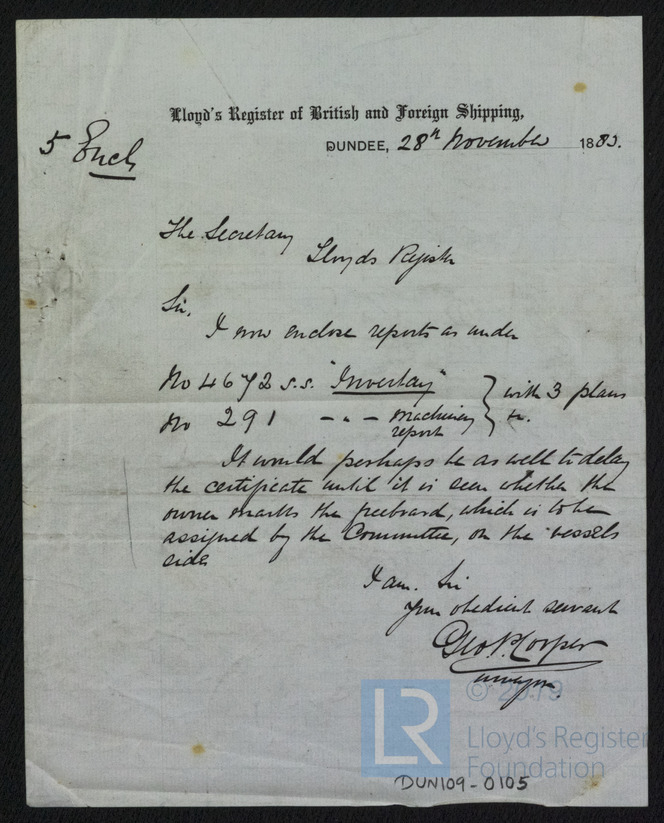 Lloyd's Register of British and Foreign Shipping,
5 Encl
DUNDEE, 28th November 1883.
The Secretary
Lloyds Register
Sir,
I now enclose reports as under
No 4672 s.s. "Invertay" } with 3 plans
No 291 - " - Machinery report }
It would perhaps be as well to delay
the certificate until it is seen whether the
owner marks the freeboard, which is to be
assigned by the Committee, on the vessels
side
I am. Sir
Your obedient servant
Geo. P. Cooper
surveyor
LR
© 2019
Lloyd's Register
Foundation
DUN109-0105